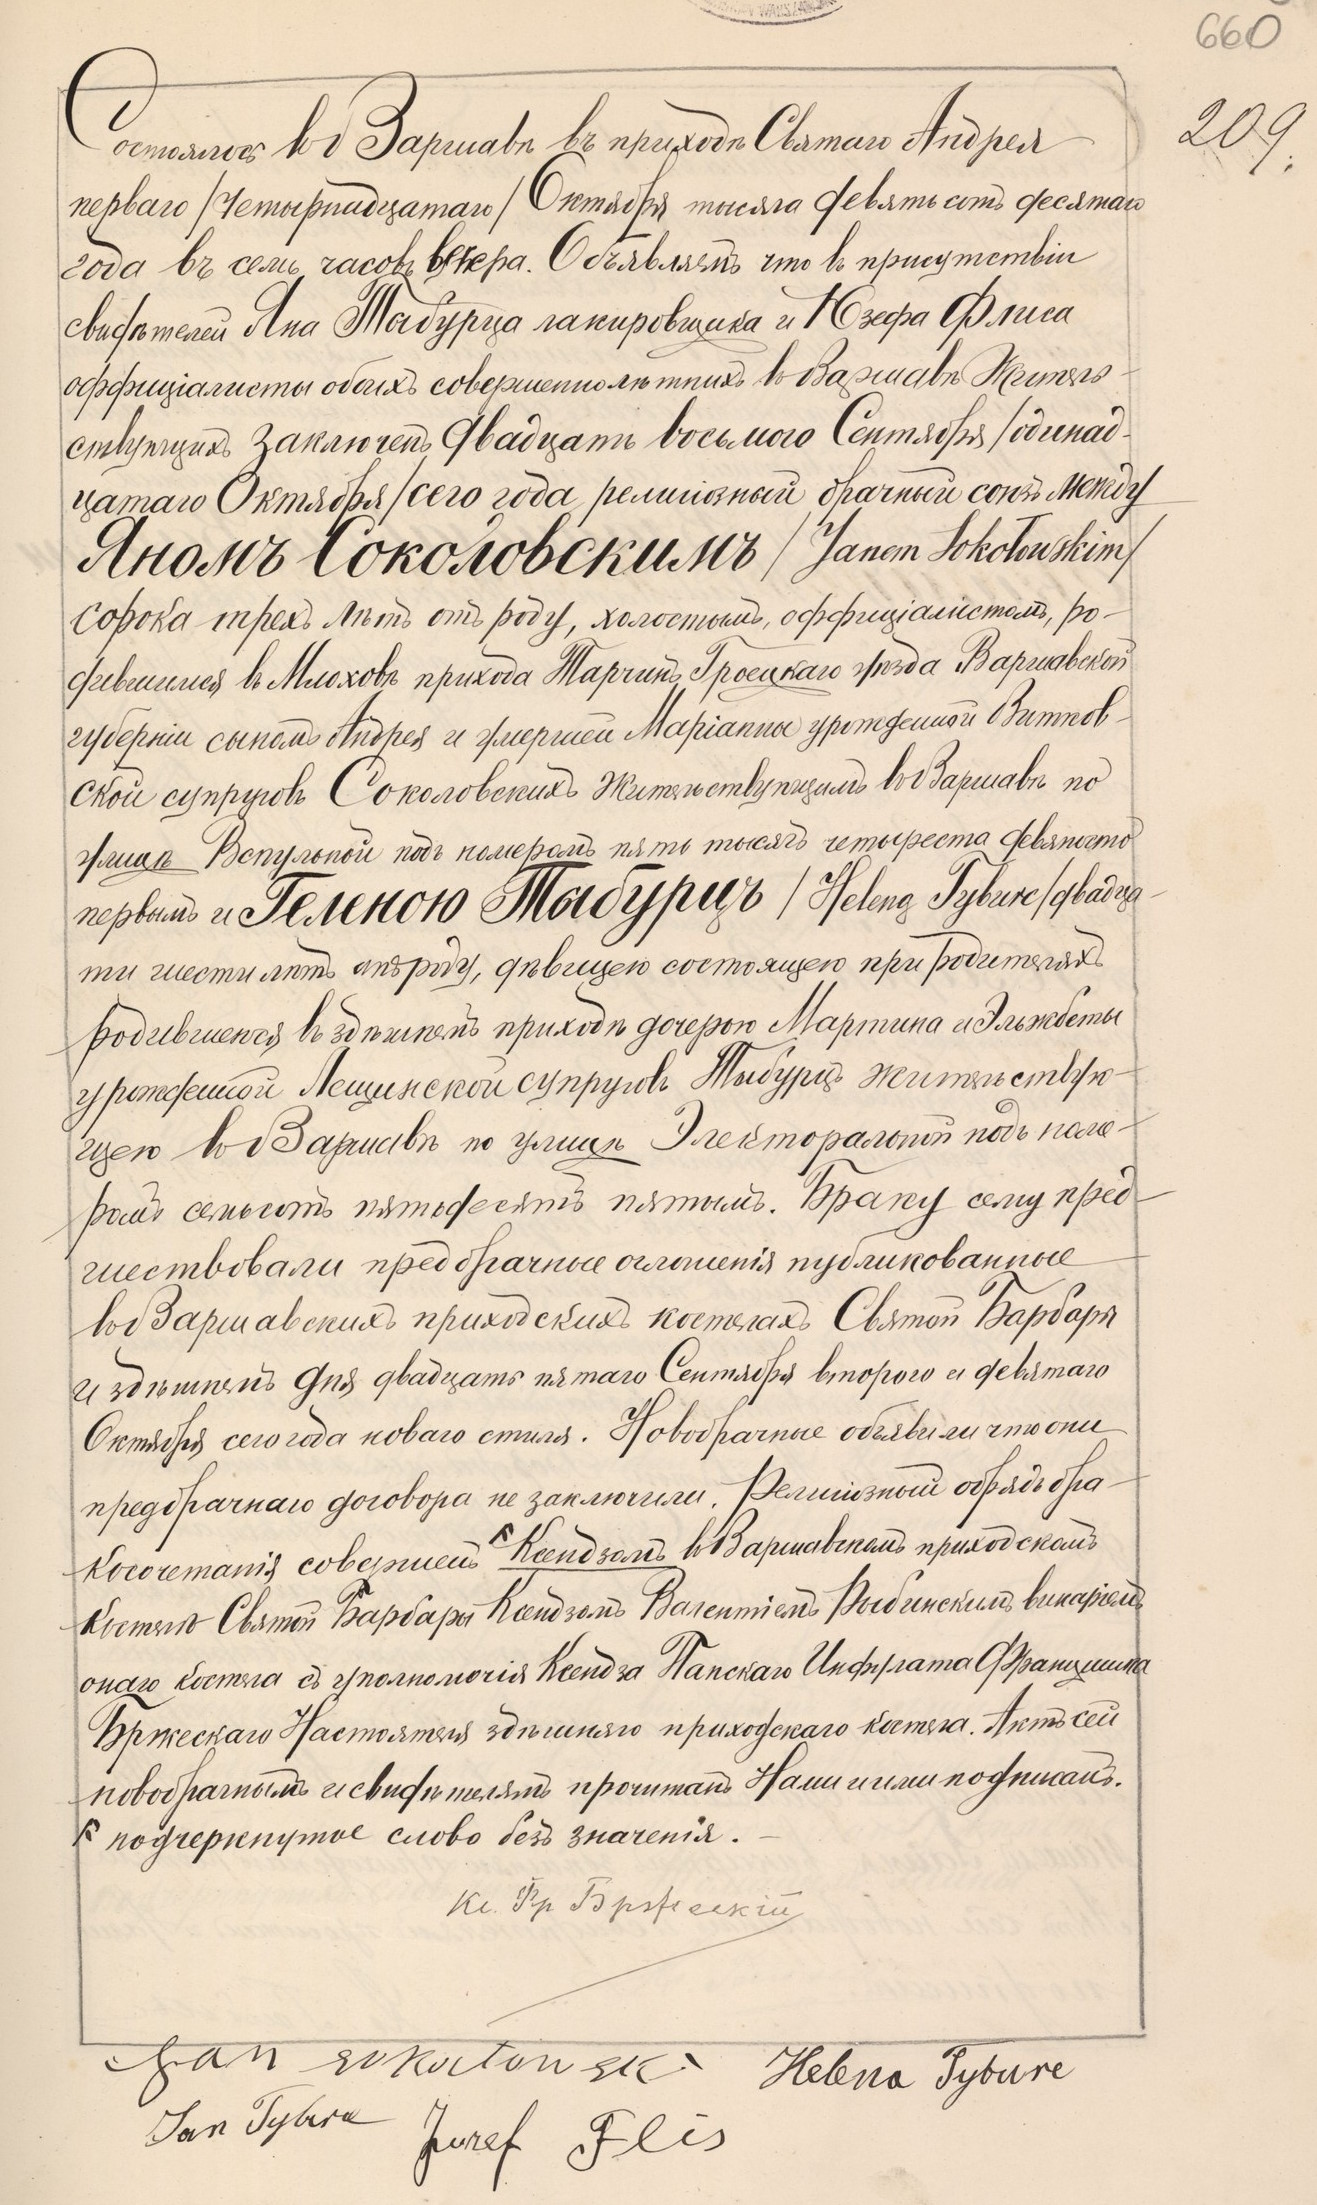 660
209.
Состоялось въ Варшавѣ въ приходѣ Святаго Андрея
перваго /четырнадцатаго/ Октября тысяча девятьсотъ десятаго
года въ семь часовъ вечера. Объявляемъ что въ присутствіи
свидѣтелей Яна Тыбурца лакировщика и Юзефа Флиса
оффиціалисты обоихъ совершеннолѣтнихъ въ Варшавѣ житель-
ствующихъ заключенъ двадцать восьмого Сентября /одинад-
цатаго Октября/ сего года религіозный брачный союзъ между
Яномъ Соколовскимъ /Janem Sokołowskim/
сорока трехъ лѣтъ отъ роду, холостымъ, оффиціалистомъ, ро-
дившимся въ Млоховѣ прихода Тарчинъ Гроецкаго уѣзда Варшавской
губерніи сыномъ Андрея и умершей Маріанны урожденной Витков-
ской супруговъ Соколовскихъ жительствующимъ въ Варшавѣ по
улицѣ Вспульной подъ номеромъ пять тысячъ четыреста девяносто
первымъ и Геленою Тыбурцъ /Heleną Tyburc/ двадца-
ти шести лѣтъ отъ роду, дѣвицею состоящею при родителяхъ
родившеюся въ здѣшнемъ приходѣ дочерью Мартина и Эльжбеты
урожденной Лещинской супруговъ Тыбурцъ жительствую-
щею въ Варшавѣ по улицѣ Электоральной подъ номе-
ромъ семьсотъ пятьдесятъ пятымъ. Браку сему пред-
шествовали предбрачные оглашенія публикованные
въ Варшавскихъ приходскихъ костелахъ Святой Барбары
и здѣшнемъ дня двадцать пятаго Сентября второго и девятаго
Октября сего года новаго стиля. Новобрачные объявили что они
предбрачнаго договора не заключили. Религіозный обрядъ бра-
косочетанія совершенъ Ксендзомъ въ Варшавскомъ приходскомъ
костелѣ Святой Барбары Ксендзомъ Валентіемъ Рыбинскимъ викаріемъ
онаго костела съ уполномочія Ксендза Папскаго Инфулата Францишка
Бржескаго Настоятеля здѣшняго приходскаго костела. Актъ сей
новобрачнымъ и свидѣтелямъ прочитанъ Нами и ими подписанъ.
подчеркнутое слово безъ значенія. –
Кс. Фр Бржескій
Jan Sokołowski Helena Tyburc
Jan Tyburc Juzef Flis